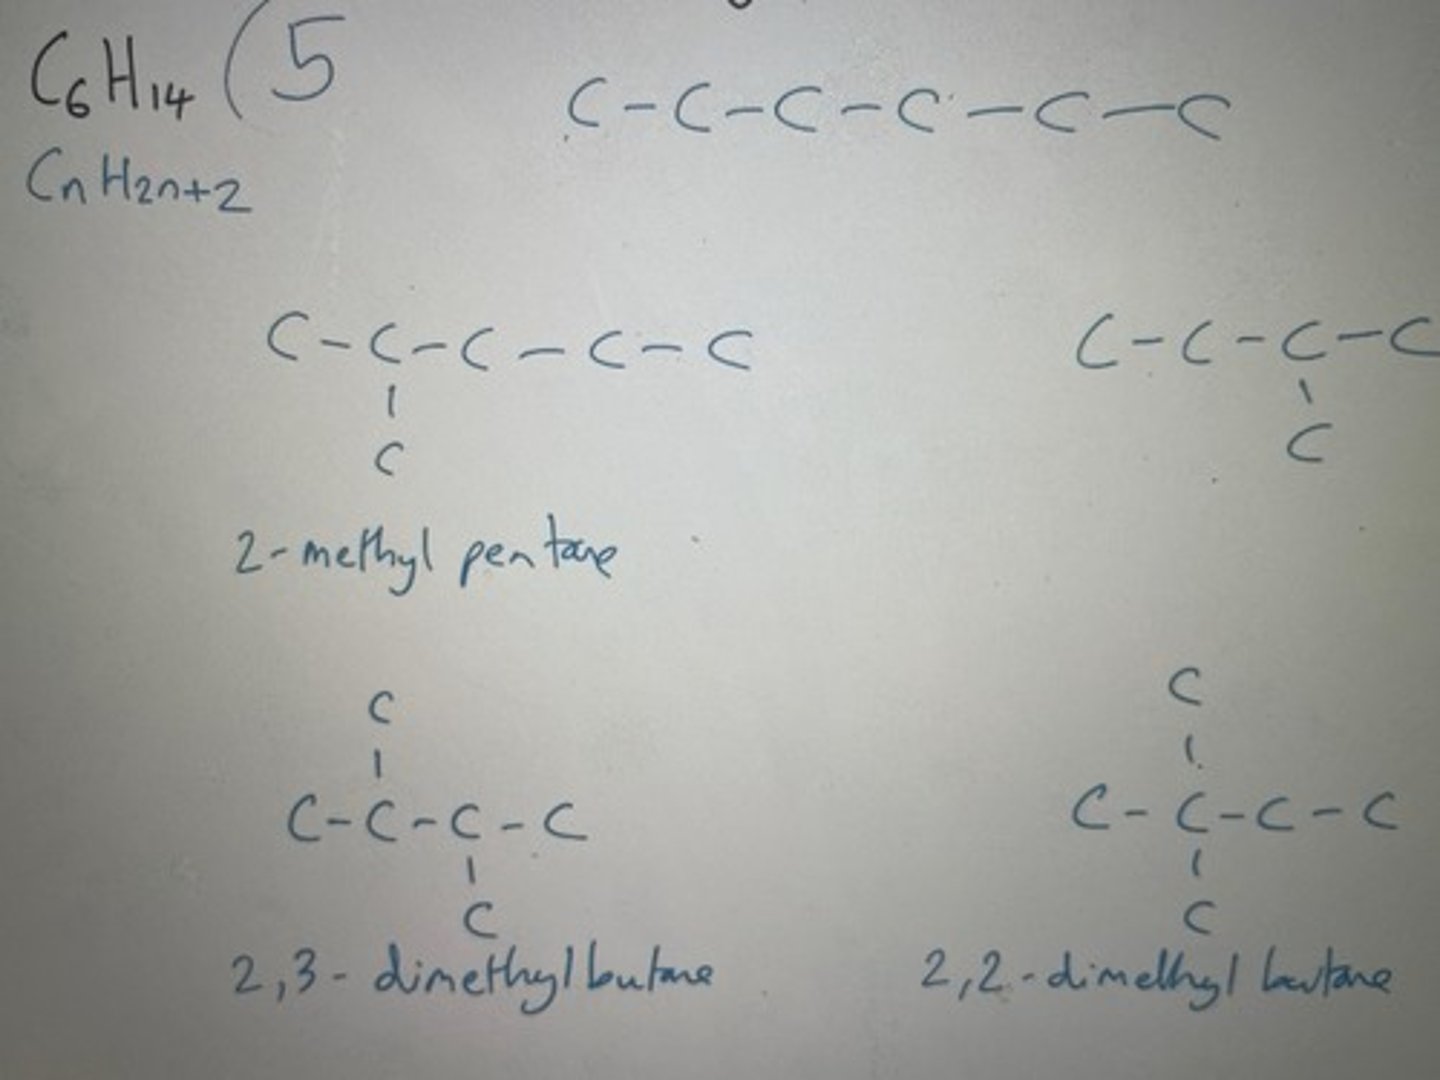 C6H14 (5
CnH2n+2
C-C-C-C-C-C
C-C-C-C-C
C
C-C-C-C
C
2-methyl pentane
C
C-C-C-C
C
2,3-dimethylbutane
C
C-C-C-C
C
2,2-dimethyl butane